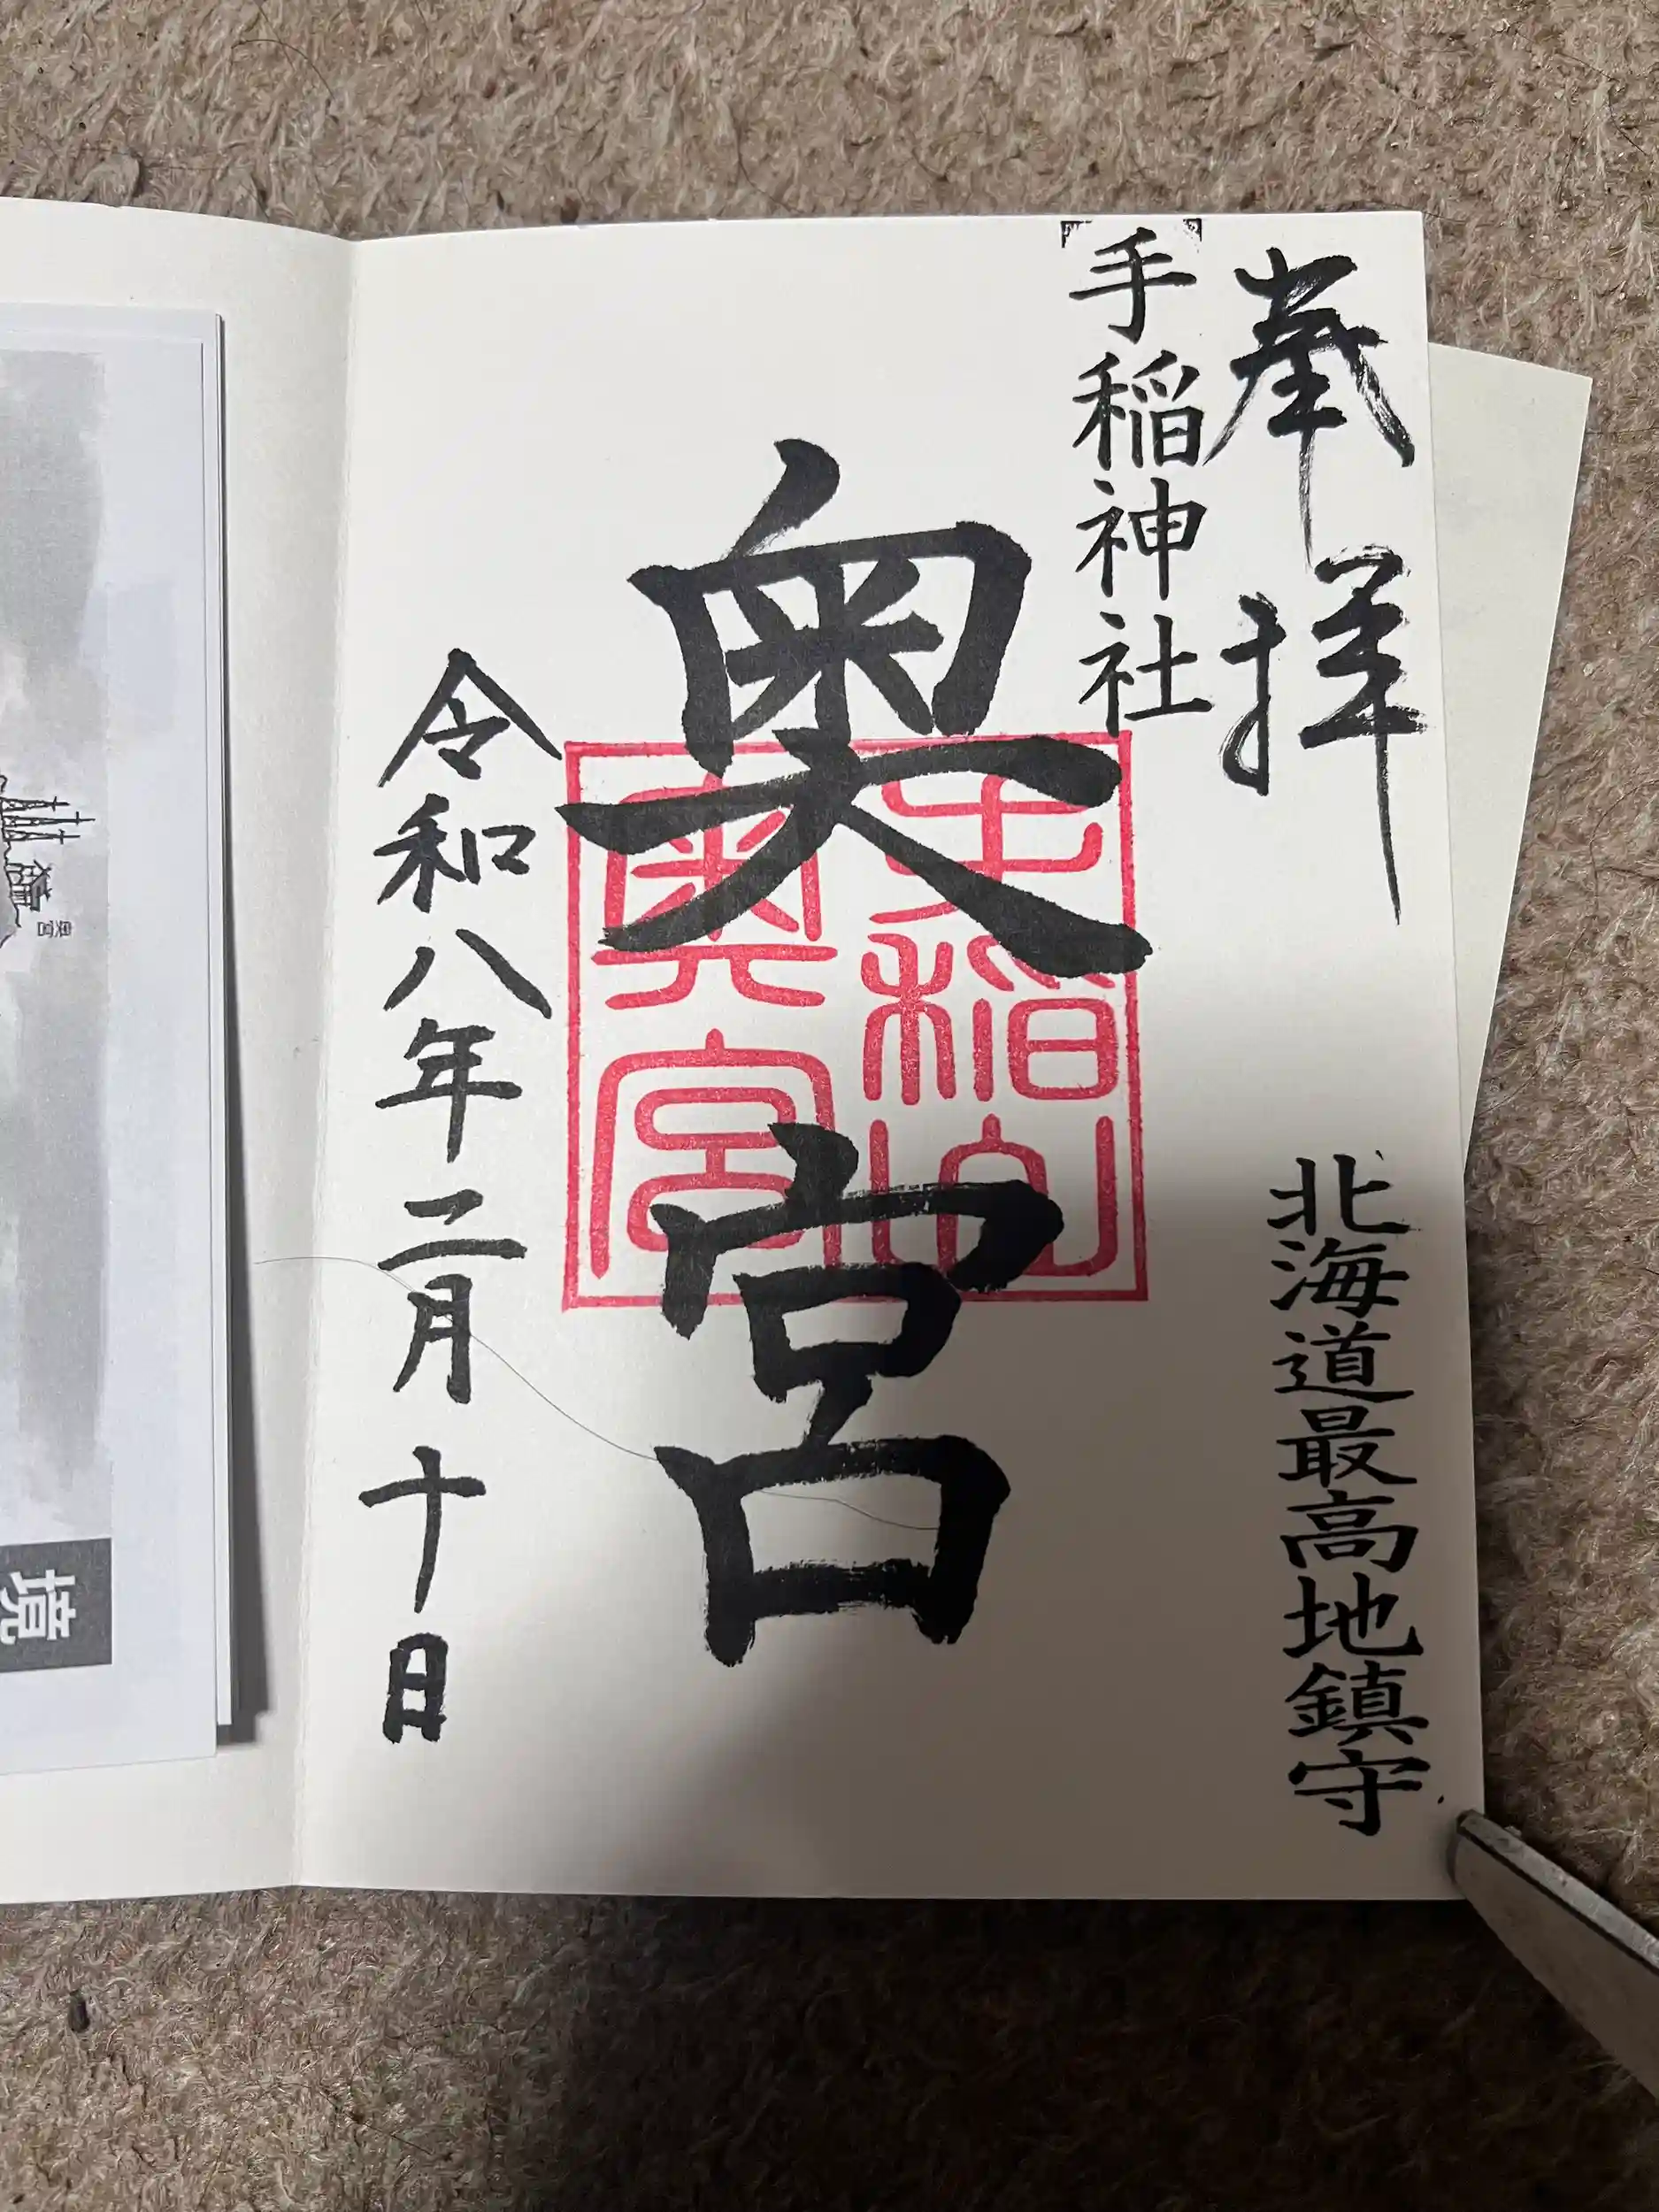 奉拝
北海道最高地鎮守
手稲神社
奥宮
手稲山
奥宮
令和八年二月十日
奥宮
境